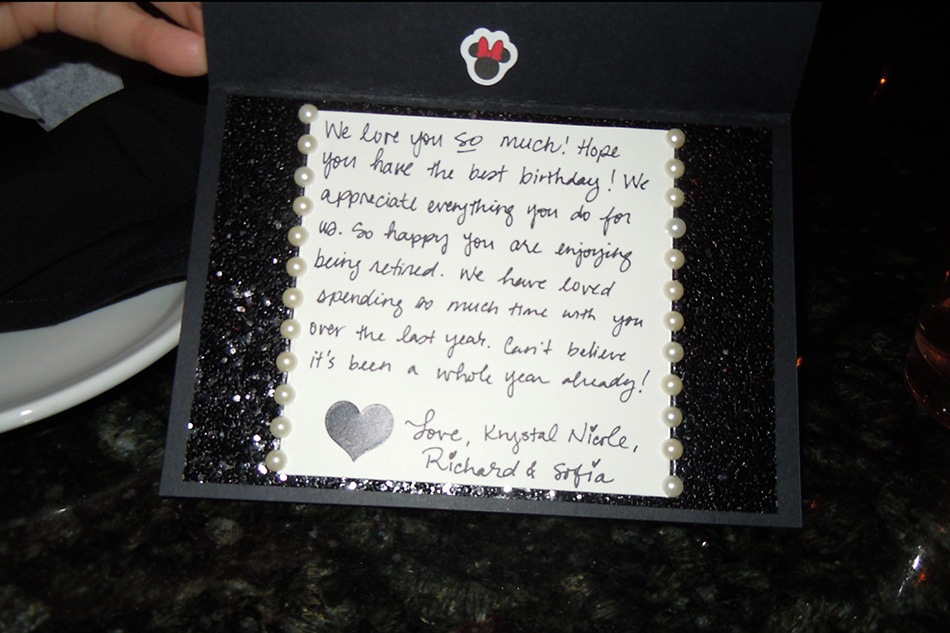 We love you so much! Hope
you have the best birthday! We
appreciate everything you do for
us. So happy you are enjoying
being retired. We have loved
spending so much time with you
over the last year. Can't believe
it's been a whole year already!
Love, Krystal Nicole,
Richard & Sofia